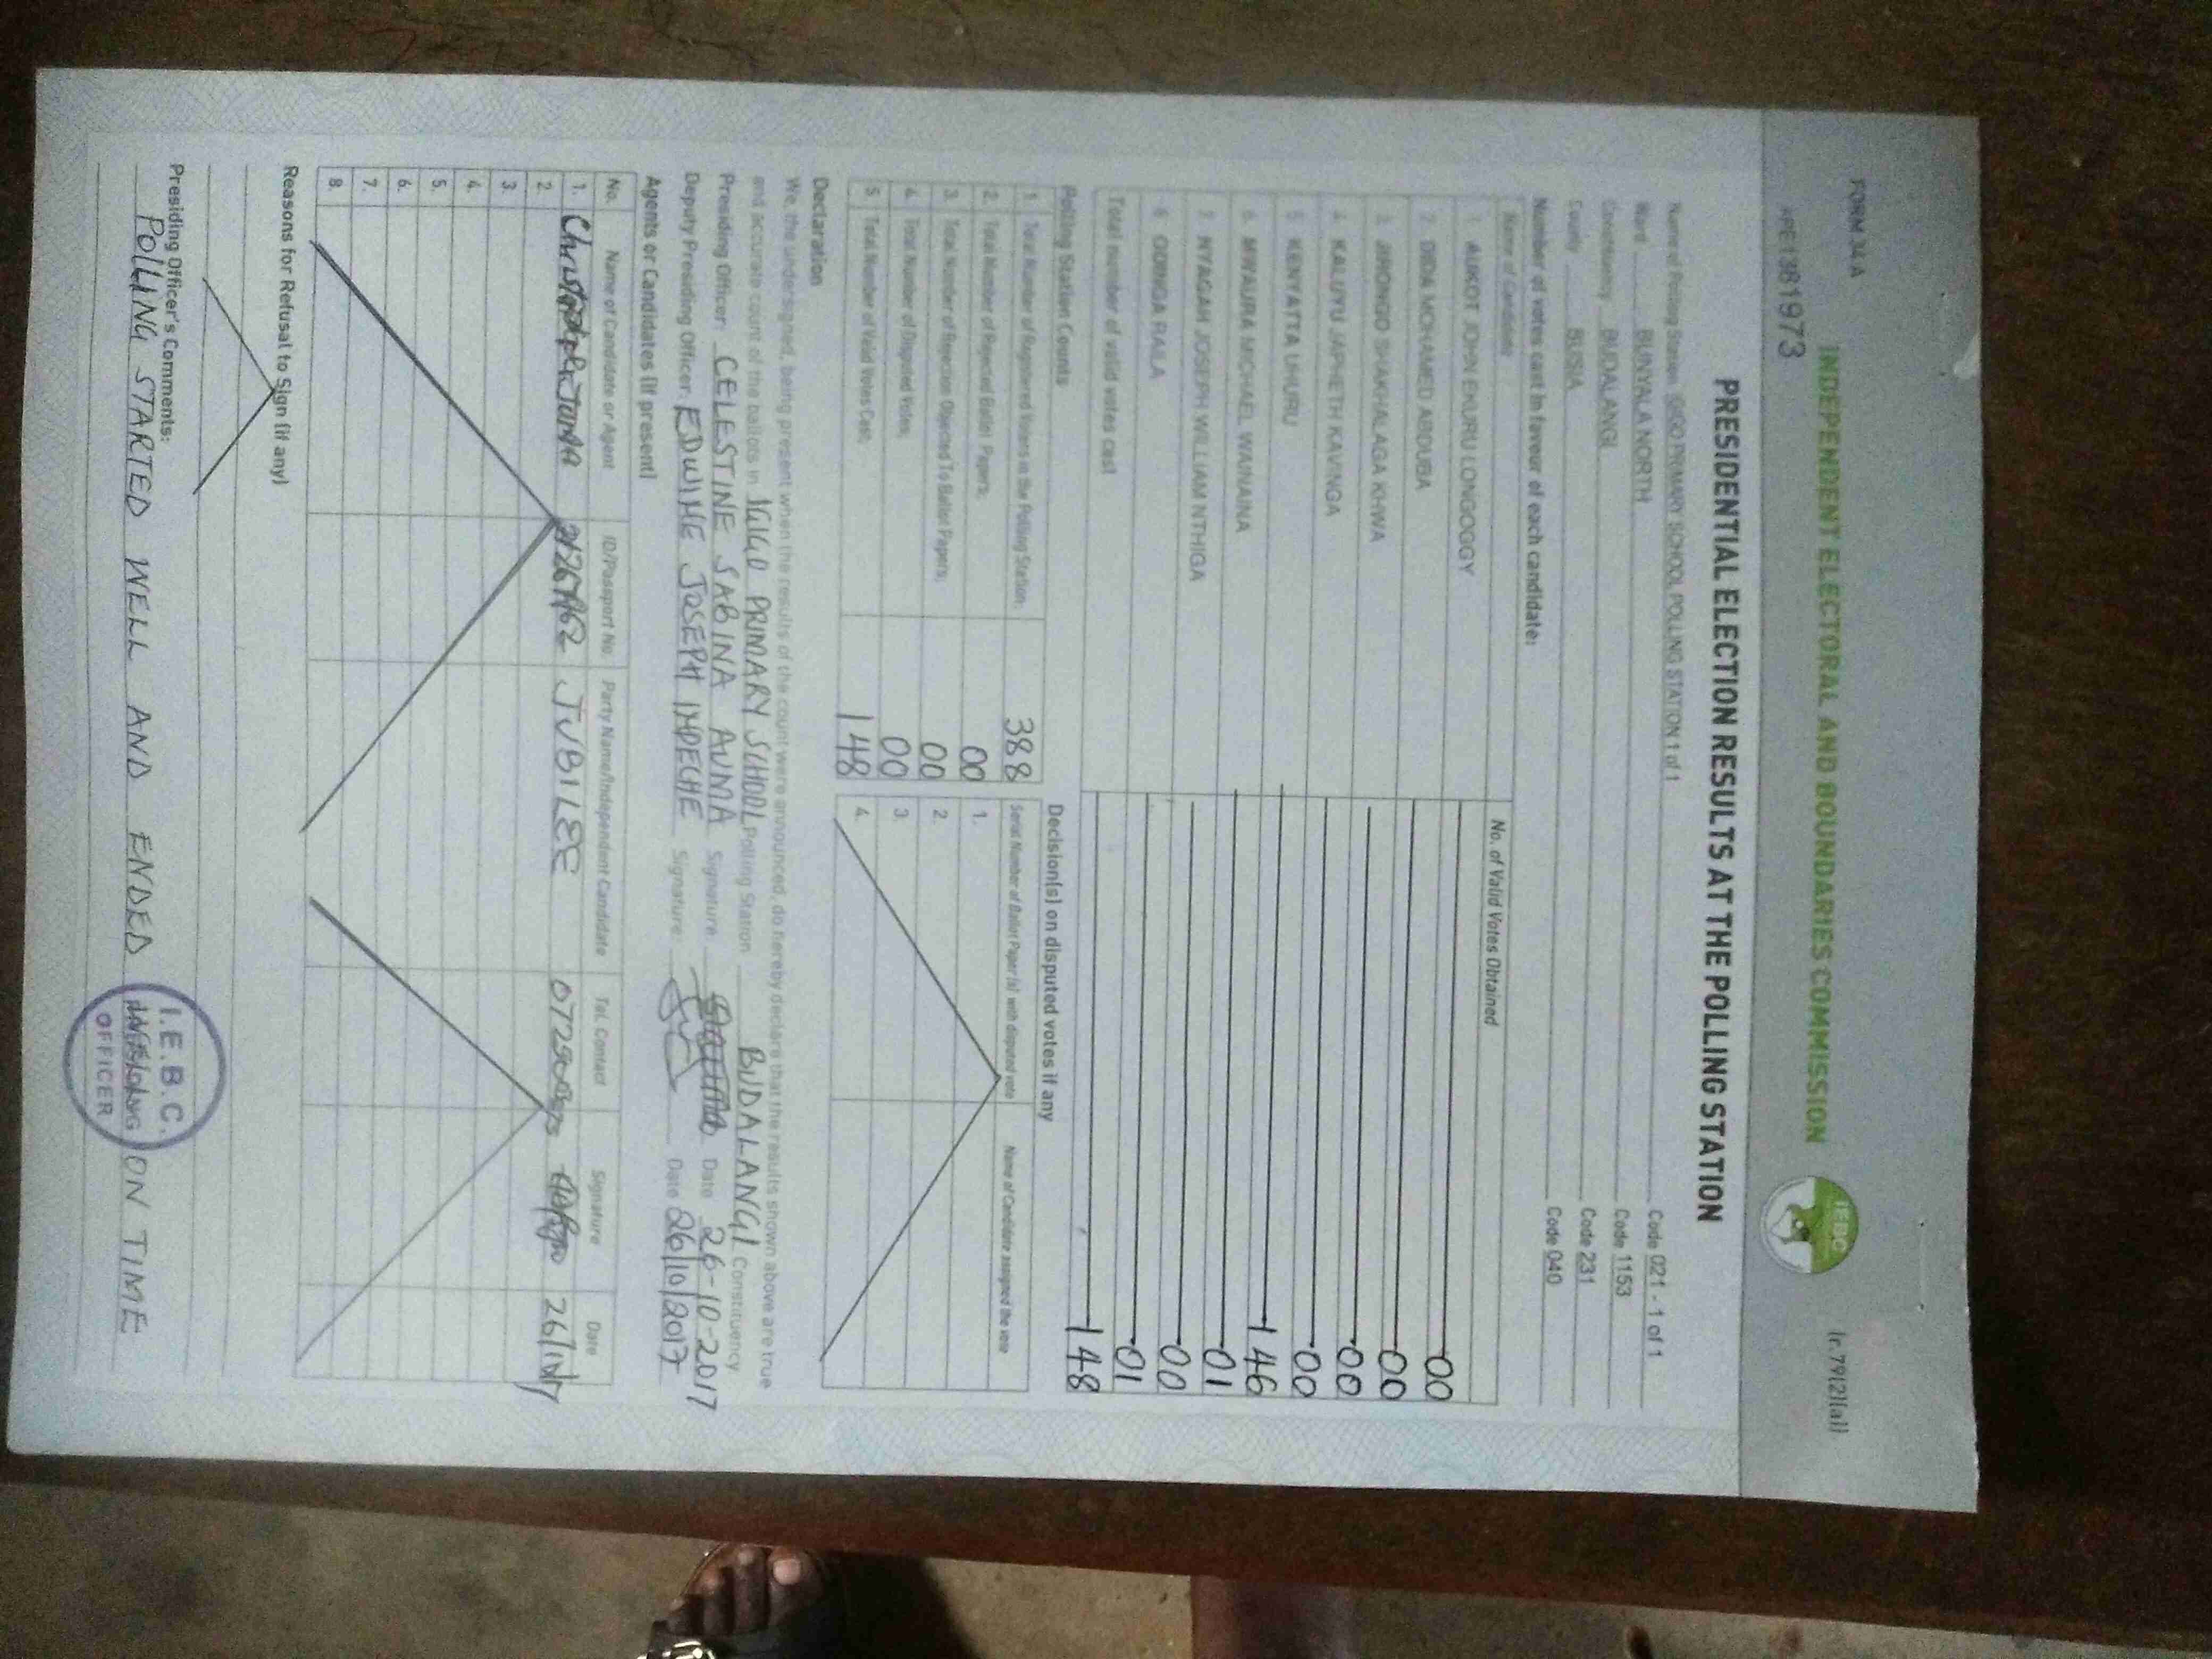 FORM 34 A
INDEPENDENT ELECTORAL AND BOUNDARIES COMMISSION
IEBC
(r.79(2)(a))
PRESIDENTIAL ELECTION RESULTS AT THE POLLING STATION
Name of Polling Station PRIMARY SCHOOL POLLING STATION 1 of 1 Code 021 - 1 of 1
Ward BUNYALA NORTH Code 1153
Constituency BUDALANGI Code 231
County BUSIA Code 040
Number of votes cast in favour of each candidate:
Name of Candidate No. of Valid Votes Obtained
1. AUKOT JOHN EKURU LONGOGGY 00
2. DIDA MOHAMED ABDUBA 00
3. JIRONGO SHAKHALAGA KHWA 00
4. KALUYU JAPHETH KAVINGA 00
5. KENYATTA UHURU 146
6. MWAURA MICHAEL WAINAINA 01
7. NYAGAH JOSEPH WILLIAM NTHIGA 00
8. ODINGA RAILA 01
Total number of valid votes cast 148
Polling Station Counts
1. Total Number of Registered Voters in the Polling Station; 388
2. Total Number of Rejected Ballot Papers; 00
3. Total Number of Rejection Objected To Ballot Papers; 00
4. Total Number of Disputed Votes; 00
5. Total Number of Valid Votes Cast; 148
Decision(s) on disputed votes if any
Serial Number of Ballot Paper (s) with disputed vote Name of Candidate assigned the vote
1.
2.
3.
4.
Declaration
We, the undersigned, being present when the results of the count were announced, do hereby declare that the results shown above are true
and accurate count of the ballots in PRIMARY SCHOOL Polling Station BUDALANGI Constituency
Presiding Officer: CELESTINE SABINA AUMA Signature Date 26-10-2017
Deputy Presiding Officer: EDWINE JOSEPH Signature: Date 26/10/2017
Agents or Candidates (if present)
No. Name of Candidate or Agent ID/Passport No. Party Name/Independent Candidate Tel. Contact Signature Date
1. JUBILEE
2.
3.
4.
5.
6.
7.
8.
Reasons for Refusal to Sign (if any)
Presiding Officer's Comments:
POLLING STARTED WELL AND ENDED ON TIME
I.E.B.C.
OFFICER